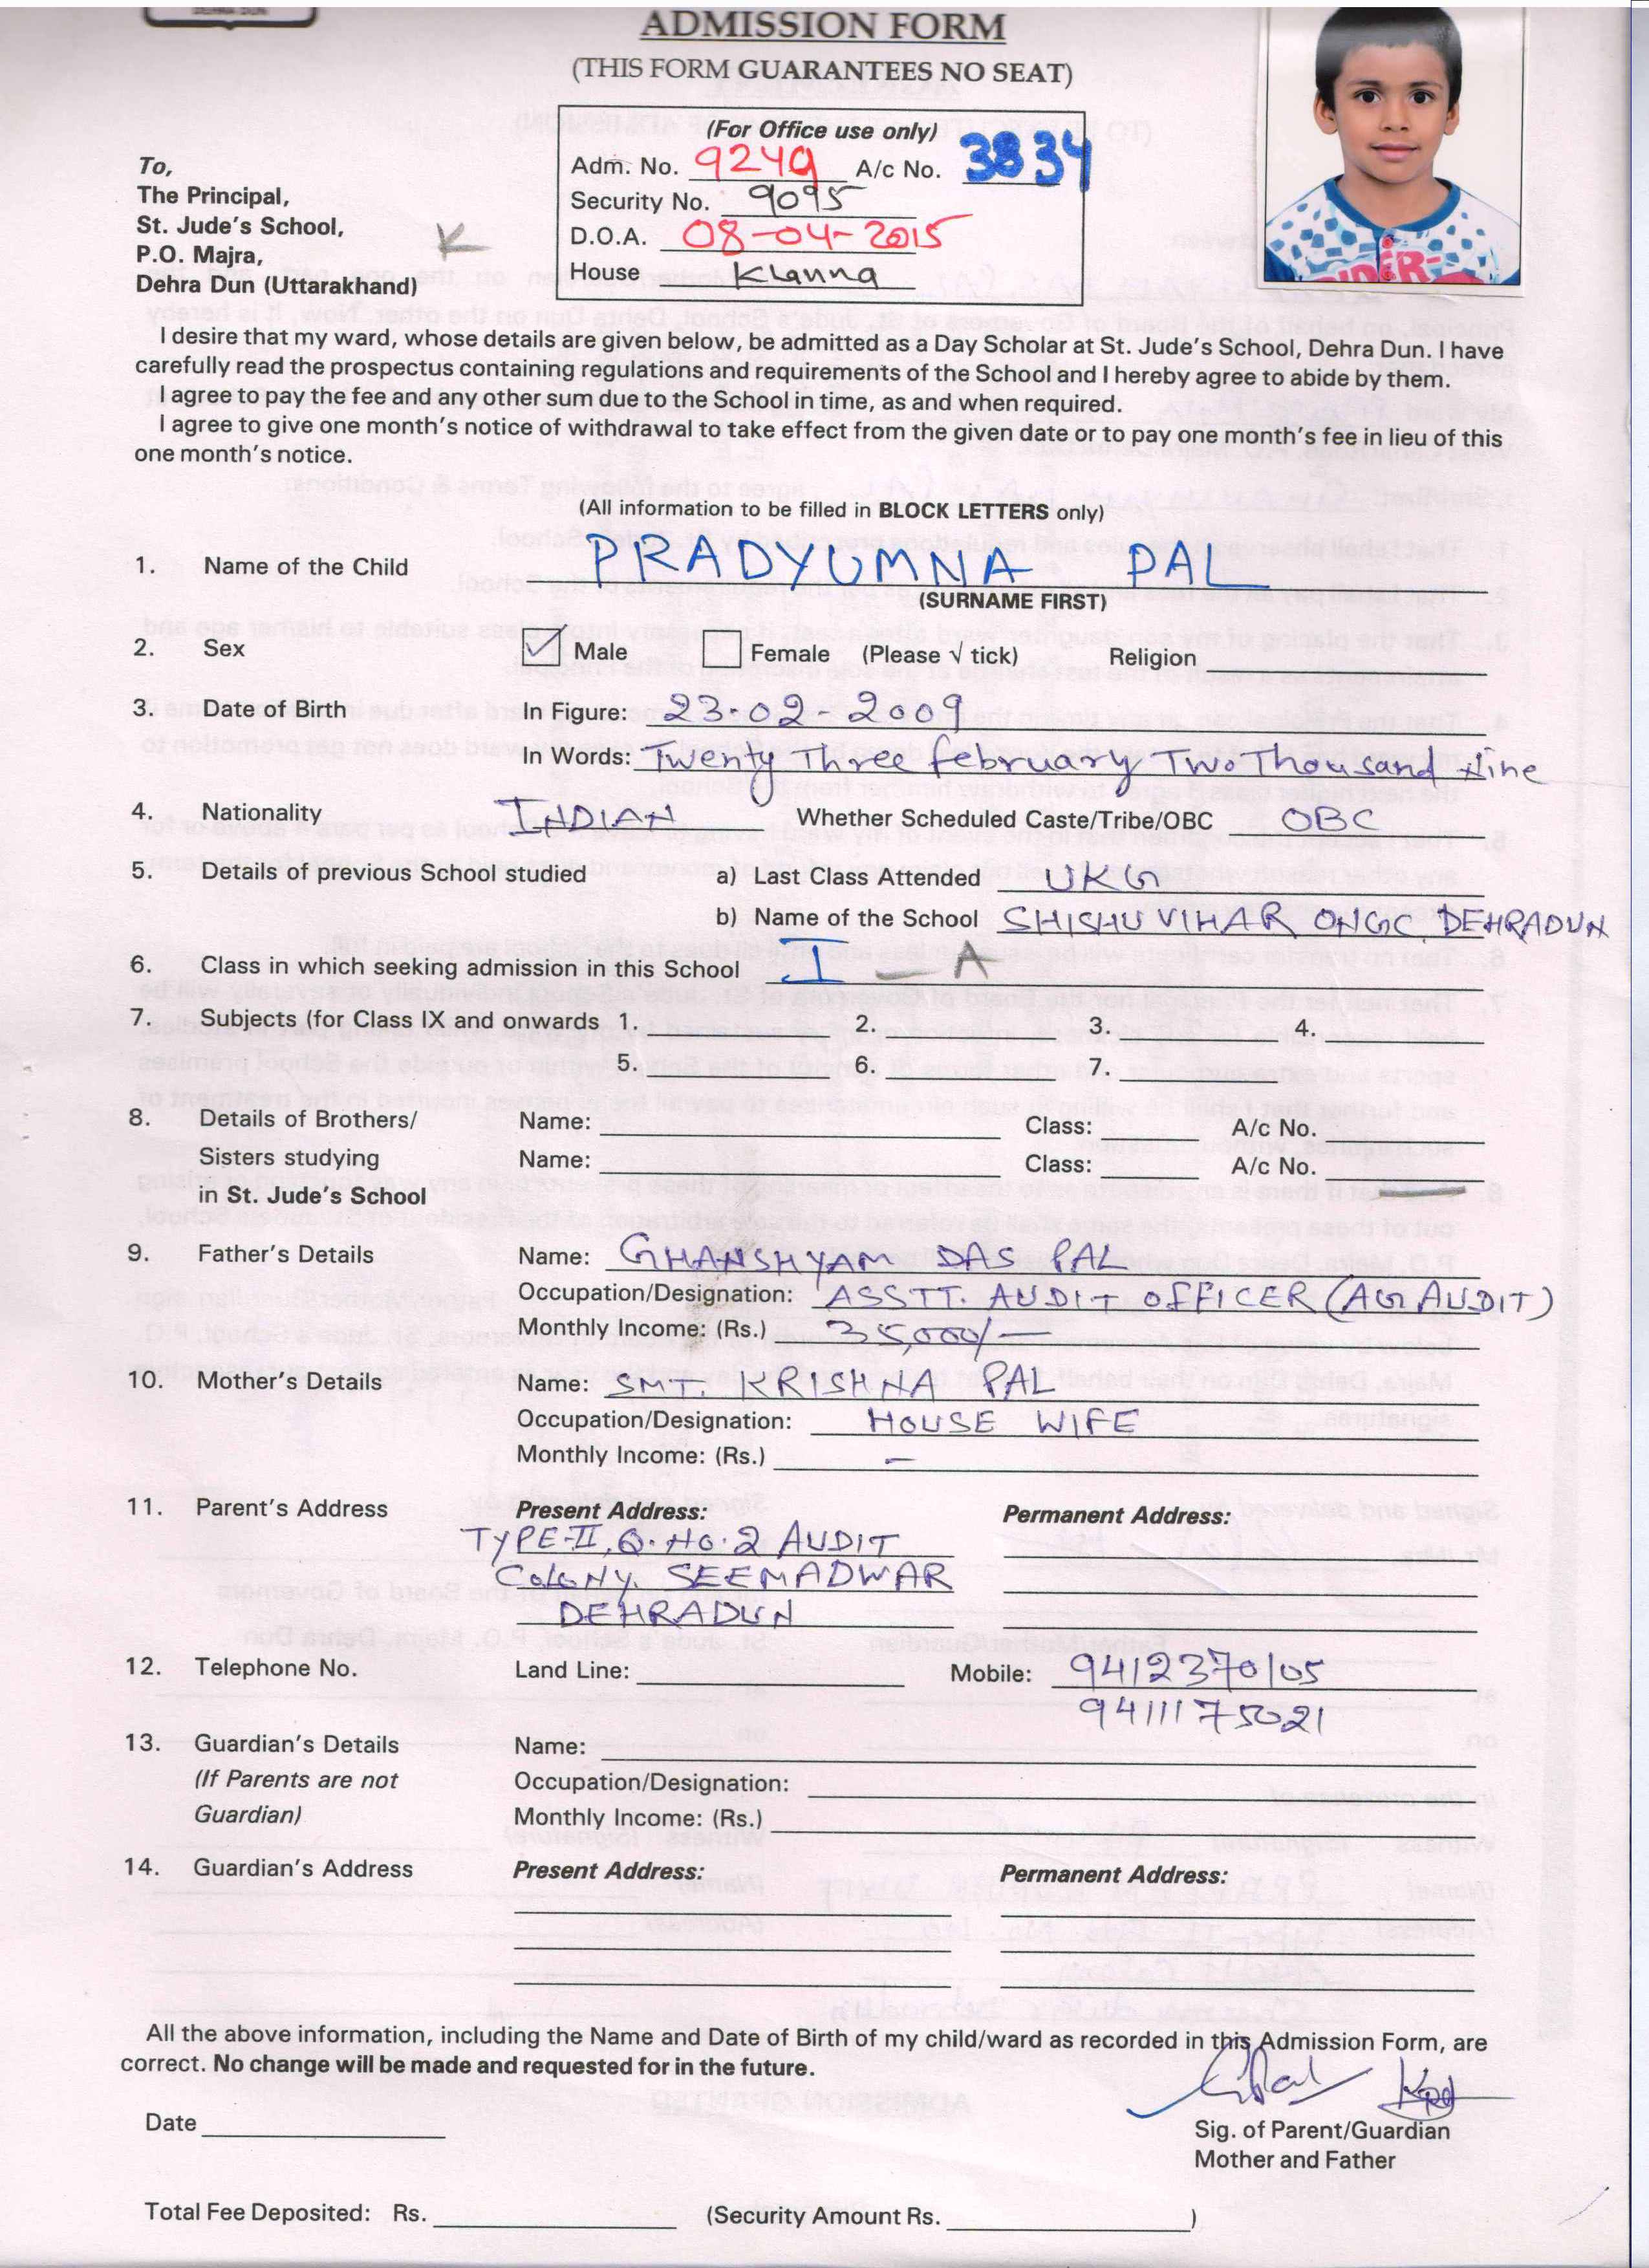 DEHRA DUN
ADMISSION FORM
(THIS FORM GUARANTEES NO SEAT)
(For Office use only)
Adm. No. 9249 A/c No. 3834
Security No. 9095
D.O.A. 08-04-2015
House Klanna
To,
The Principal,
St. Jude's School,
P.O. Majra,
Dehra Dun (Uttarakhand)
K
I desire that my ward, whose details are given below, be admitted as a Day Scholar at St. Jude's School, Dehra Dun. I have
carefully read the prospectus containing regulations and requirements of the School and I hereby agree to abide by them.
I agree to pay the fee and any other sum due to the School in time, as and when required.
I agree to give one month's notice of withdrawal to take effect from the given date or to pay one month's fee in lieu of this
one month's notice.
(All information to be filled in BLOCK LETTERS only)
1. Name of the Child PRADYUMNA PAL
(SURNAME FIRST)
2. Sex Male Female (Please √ tick) Religion
3. Date of Birth In Figure: 23-02-2009
In Words: Twenty Three february Two Thousand Nine
4. Nationality INDIAN Whether Scheduled Caste/Tribe/OBC OBC
5. Details of previous School studied a) Last Class Attended UKG
b) Name of the School SHISHU VIHAR ONGC DEHRADUN
6. Class in which seeking admission in this School I - A
7. Subjects (for Class IX and onwards 1. 2. 3. 4.
5. 6. 7.
8. Details of Brothers/ Name: Class: A/c No.
Sisters studying Name: Class: A/c No.
in St. Jude's School
9. Father's Details Name: GHANSHYAM DAS PAL
Occupation/Designation: ASSTT. AUDIT OFFICER (AG AUDIT)
Monthly Income: (Rs.) 35,000/-
10. Mother's Details Name: SMT. KRISHNA PAL
Occupation/Designation: HOUSE WIFE
Monthly Income: (Rs.) -
11. Parent's Address Present Address: Permanent Address:
TYPE-II, Q.NO.2 AUDIT
COLONY. SEEMADWAR
DEHRADUN
12. Telephone No. Land Line: Mobile: 9412370105
9411175021
13. Guardian's Details Name:
(If Parents are not Occupation/Designation:
Guardian) Monthly Income: (Rs.)
14. Guardian's Address Present Address: Permanent Address:
All the above information, including the Name and Date of Birth of my child/ward as recorded in this Admission Form, are
correct. No change will be made and requested for in the future.
Date
Sig. of Parent/Guardian
Mother and Father
Total Fee Deposited: Rs. (Security Amount Rs. )